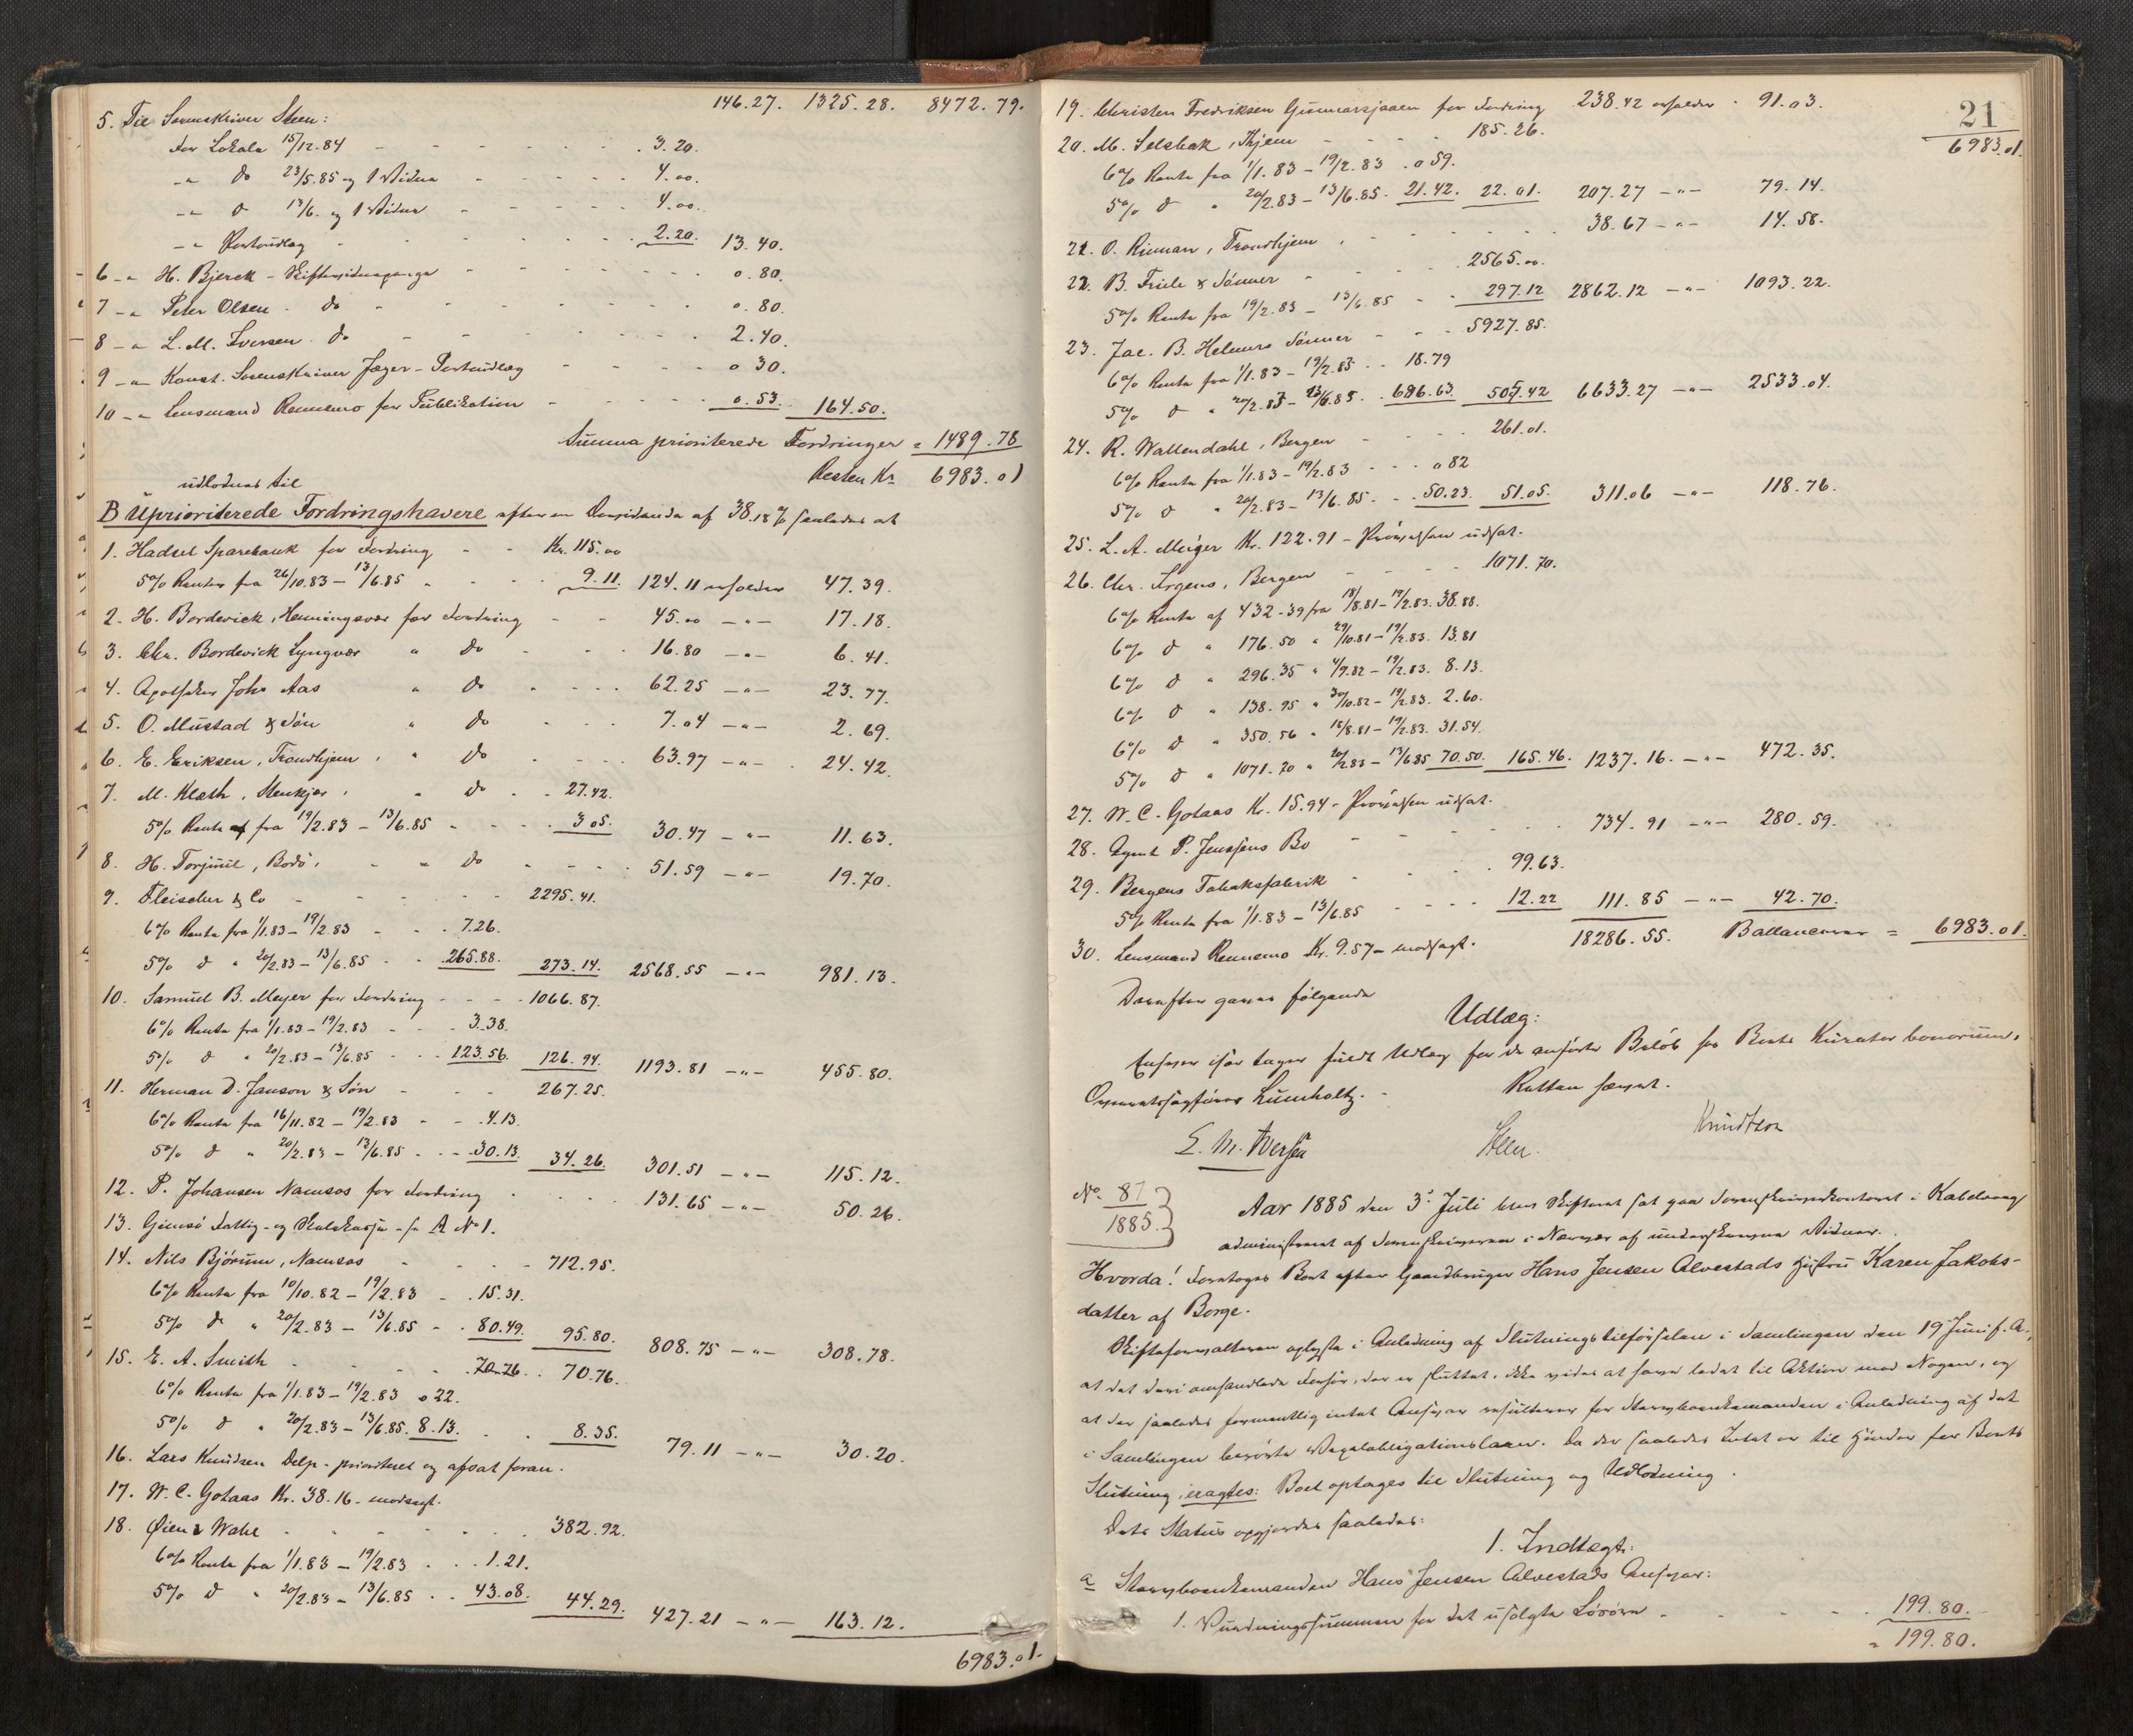 146.27. 1325.28. 8472.79.
5. Til Sorenskriver Steen:
for Lokale 15/12.84 - - - - - - 3.20.
-"- do 23/5.85 og 1 Vidne - - - - - 4.00.
-"- do 13/6. og 1 Vidne - - - - - 4.00.
-"- Portoudlæg - - - - - 2.20. 13.40.
6 -"- H. Bjerck - - - - - - 0.80.
7 -"- Peter Olsen - do - - - - - 0.80.
8 -"- L. M. Iversen do - - - - - 2.40.
9 -"- Konst. Sorenskriver Jæger - Portoudlæg - - - - 0.30.
10 -"- Lensmand Rennemo for Publikation - - - - 0.53. 164.50.
Summa prioriterede Fordringer = 1489.78
Resten Kr. 6983.01
udloddes til
B Uprioriterede Fordringshavere efter en Dividende af 38.18% saaledes at
1. Hadsel Sparebank for Fordring - - Kr. 115.00
5% Renter fra 26/10.83 - 13/6.85 - - - - 9.11. 124.11 erholder 47.39.
2. H. Bordevick, Henningsvær for Fordring - - 45.00 -"- 17.18.
3. Chr. Bordevick Lyngvær " do - - - 16.80 -"- 6.41.
4. Apotheker Johs Aas " do - - - - 62.25 -"- 23.77.
5. O. Mustad & Søn " do - - - 7.04 -"- 2.69.
6. E. Eriksen, Trondhjem, " do - - - - 63.97 -"- 24.42.
7. M. Klæth, Stenkjær, " do - - 27.42.
5% Rente fra 19/2.83 - 13/6.85 - - - - 3.05. 30.47 -"- 11.63.
8. H. Torjuul, Bodø, - " do - - - - 51.59 -"- 19.70.
9. Fleischer & Co - - - - - - 2295.41.
6% Rente fra 1/1.83 - 19/2.83 - - - 7.26.
5% do " 20/2.83 - 13/6.85 - - 265.88. 273.14. 2568.55 -"- 981.13.
10. Samuel B. Meyer for Fordring - - - 1066.87.
6% Rente fra 1/1.83 - 19/2.83 - - - 3.38.
5% do " 20/2.83 - 13/6.85 - - 123.56. 126.94. 1193.81 -"- 455.80.
11. Herman D. Janson & Søn - - - 267.25.
6% Rente fra 16/11.82 - 19/2.83 - - 4.13.
5% do " 20/2.83 - 13/6.85 - - 30.13. 34.26. 301.51 -"- 115.12.
12. P. Johansen Namsos for Fordring - - - - 131.65 -"- 50.26.
13. Gimsø Fattig- og Skolekasse - se A No 1.
14. Nils Bjørum, Namsos - - - - 712.95.
6% Rente fra 10/10.82 - 19/2.83 - - 15.31.
5% do " 20/2.83 - 13/6.85 - - 80.49. 95.80. 808.75 -"- 308.78.
15. E. A. Smith - - - - 70.76. - - 70.76.
6% Rente fra 1/1.83 - 19/2.83 0.22.
5% do " 20/2.83 - 13/6.85. 8.13. - - 8.35. 79.11 -"- 30.20.
16. Lars Knudsen Delp - prioriteret og afsat foran.
17. W. C. Gotaas Kr. 38.16 - modsagt.
18. Øien & Wahl - - - - - - 382.92.
6% Rente fra 1/1.83 - 19/2.83 - - - 1.21.
5% do " 20/2.83 - 13/6.85 - - 43.08. 44.29. 427.21 -"- 163.12.
6983.01.
21
6983.01.
19. Christen Fredriksen Gunnarsjaaen for Fordring 238.42 erholder - 91.03.
20. M. Selsbak, Thjem - - - - 185.26.
6% Rente fra 1/1.83 - 19/2.83 . 0.59.
5% do " 20/2.83 - 13/6.85. 21.42. 22.01. 207.27 -"- 79.14.
21. O. Rieman, Trondhjem, - - - - - - 38.67 -"- 14.58.
22. B. Friele & Sønner - - - - 2565.00.
5% Rente fra 19/2.83 - 13/6.85 - - 297.12 2862.12 -"- 1093.22.
23. Jac. B. Helmers Sønner - - - 5927.85.
6% Rente fra 1/1.83 - 19/2.83 - - 18.79
5% do " 20/2.83 - 13/6.85 - 686.63 6633.27 -"- 2533.04.
24. R. Wallendahl, Bergen - - - - 261.01.
6% Rente fra 1/1.83 - 19/2.83 - - - 0.82
5% do " 20/2.83 - 13/6.85 - - 50.23. 51.05. 311.06 -"- 118.76.
25. L. A. Meyer Kr. 122.91 - udsat.
26. Chr. Irgens, Bergen - - - - 1071.70.
6% Rente af 432.39 fra 18/8.81 - 19/2.83. 38.88.
6% do " 176.50 " 29/10.81 - 19/2.83. 13.81
6% do " 296.35 " 4/9.82 - 19/2.83. 8.13.
6% do " 138.95 " 30/10.82 - 19/2.83. 2.60.
6% do " 350.56 " 18/8.81 - 19/2.83. 31.54.
5% do " 1071.70 " 20/2.83 - 13/6.85 70.50. 165.46. 1237.16. -"- 472.35.
27. W. C. Gotaas Kr. 15.94 - udsat.
28. Agent P. Jenssens Bo - - - - - - 734.91 -"- 280.59.
29. Bergens Tobaksfabrik - - - 99.63.
5% Rente fra 1/1.83 - 13/6.85 - - - - 12.22 111.85 -"- 42.70.
30. Lensmand Rennemo Kr. 9.57 - modsagt. 18286.55. Ballancerer = 6983.01.
Derefter gjøres følgende
Udlæg:
Enhver især tages fuldt Udlæg for de anførte Beløb hos Boets Kurator bonorum,
Overretssagfører Lumholtz. - Retten hævet.
E. M. Iversen Steen. Knudtzon
No. 87
1885.
Aar 1885 den 3. Juli blev Skifteret sat paa Sorenskriverkontoret i Kabelvaag
administreret af Sorenskriveren i Nærvær af underskrevne Vidner.
Hvorda! Foretoges Boet efter Gaardbruger Hans Jensen Alvestads Hustru Karen Jakobs-
datter af Borge.
Skifteforvalteren oplyste i Anledning af Slutningstilførselen i Samlingen den 19 Juni f. A.,
at det deri omhandlede Forhør, der er sluttet, ikke vides at have ledet til Aktion mod Nogen, og
at der saaledes formentlig intet Ansvar resulterer for Stervboenkemanden i Anledning af det
i Samlingen berørte Vexelobligationslaan. Da der saaledes Intet er til Hinder for Boets
Slutning, eragtes: Boet optages til Slutning og Udlodning.
Dets Status opgjordes saaledes:
1. Indtægt:
a Stervboenkemanden Hans Jensen Alvestads Ansvar:
1. Vurderingssummen for det usolgte Løsøre - - - - - 199.80.
= 199.80.